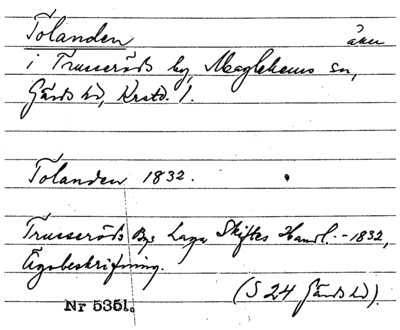 Tolanden
åker
i Trusseröds by, Maglehems sn,
Gärds hd, Krstd. l.
Tolanden 1832.
Trusseröds Bys Laga Skiftes Handl. - 1832,
Ägobeskrifning.
(S 24 Gärds hd).
Nr 5351.